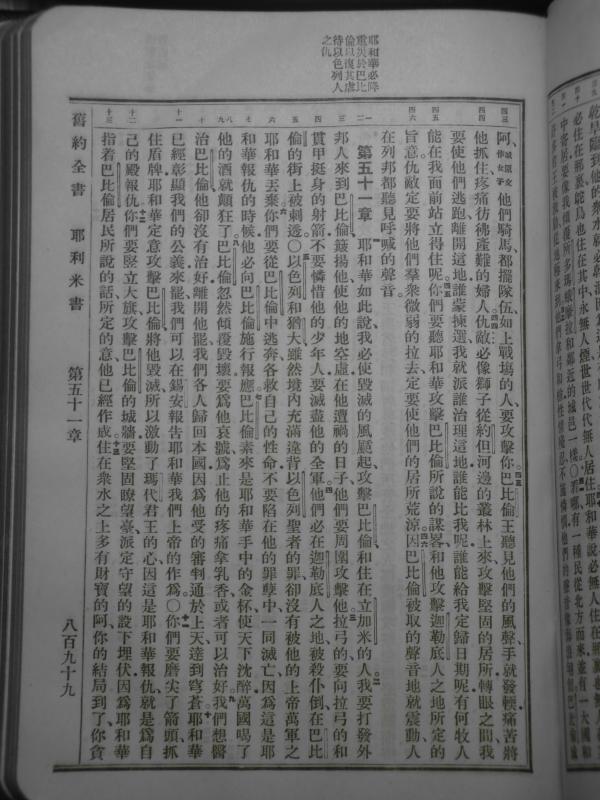 耶和華必降
重災於巴比
倫以復其虐
待以色列人
之仇
阿、城原文作女子他們騎馬都擺隊伍如上戰場的人要攻擊你巴比倫王聽見他們的風聲手就發輭痛苦將
他抓住疼痛彷彿產難的婦人仇敵必像獅子從約但河邊的叢林上來攻擊堅固的居所轉眼之間我
要使他們逃跑離開這地誰蒙揀選我就派誰治理這地誰能比我呢誰能給我定歸日期呢有何牧人
能在我面前站立得住呢你們要聽耶和華攻擊巴比倫所說的謀畧和他攻擊迦勒底人之地所定的
旨意仇敵定要將他們羣衆微弱的拉去定要使他們的居所荒涼因巴比倫被取的聲音地就震動人
在列邦都聽見呼喊的聲音
第五十一章 耶和華如此說我必使毀滅的風颳起攻擊巴比倫和住在立加米的人我要打發外
邦人來到巴比倫簸揚他使他的地空虛在他遭禍的日子他們要周圍攻擊他拉弓的要向拉弓的和
貫甲挺身的射箭不要憐惜他的少年人要滅盡他的全軍他們必在迦勒底人之地被殺仆倒在巴比
倫的街上被刺透○以色列和猶大雖然境內充滿違背以色列聖者的罪卻沒有被他的上帝萬軍之
耶和華丟棄你們要從巴比倫中逃奔各救自己的性命不要陷在他的罪孽中一同滅亡因爲這是耶
和華報仇的時候他必向巴比倫施行報應巴比倫素來是耶和華手中的金杯使天下沈醉萬國喝了
他的酒就顛狂了巴比倫忽然傾覆毀壞要爲他哀號爲止他的疼痛拿乳香或者可以治好我們想醫
治巴比倫他卻沒有治好離開他罷我們各人歸回本國因爲他受的審判通於上天達到穹蒼耶和華
已經彰顯我們的公義來罷我們可以在錫安報告耶和華我們上帝的作爲○你們要磨尖了箭頭抓
住盾牌耶和華定意攻擊巴比倫將他毀滅所以激動了瑪代君王的心因這是耶和華報仇就是爲自
己的殿報仇你們要堅立大旗攻擊巴比倫的城牆要堅固瞭望臺派定守望的設下埋伏因爲耶和華
指着巴比倫居民所說的話所定的意他已經作成住在衆水之上多有財寶的阿你的結局到了你貪
舊約全書 耶利米書 第五十一章 八百九十九